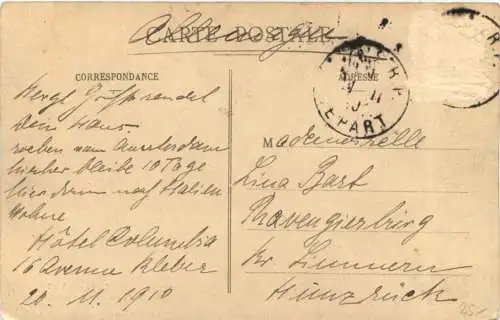 Allemagne
CARTE POSTALE
CORRESPONDANCE
ADRESSE
DEPART
Herzl. Grüße sendet
Dein Hans.
soeben von Amsterdam
hierher bleibe 10 Tage
hier dann nach Italien
Wohne
Hôtel Columbia
16 Avenue Kleber
20. 11. 1910
Mademoiselle
Lina Bart
Ravengiersburg
Kr. Simmern
Hunsrück